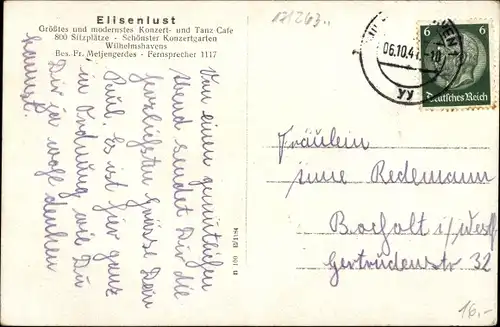 Elisenlust
Größtes und modernstes Konzert- und Tanz-Cafe
800 Sitzplätze - Schönster Konzertgarten
Wilhelmshavens
Bes. Fr. Metjengerdes - Fernsprecher 1117
Von einen gemütlichen
Abend sendet Dir die
herzlichsten Grüsse Dein
Paul. Es ist hier ganz
in Ordnung wie Du
Dir ja wohl denken
kannst.
06.10.41
6 6
Deutsches Reich
Fräulein
Redemann
Bocholt i/Westf
Gertrudenstr 32
16,-